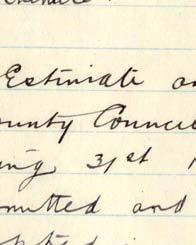 Estimate an
ounty Counci
ing 31st
mitted and